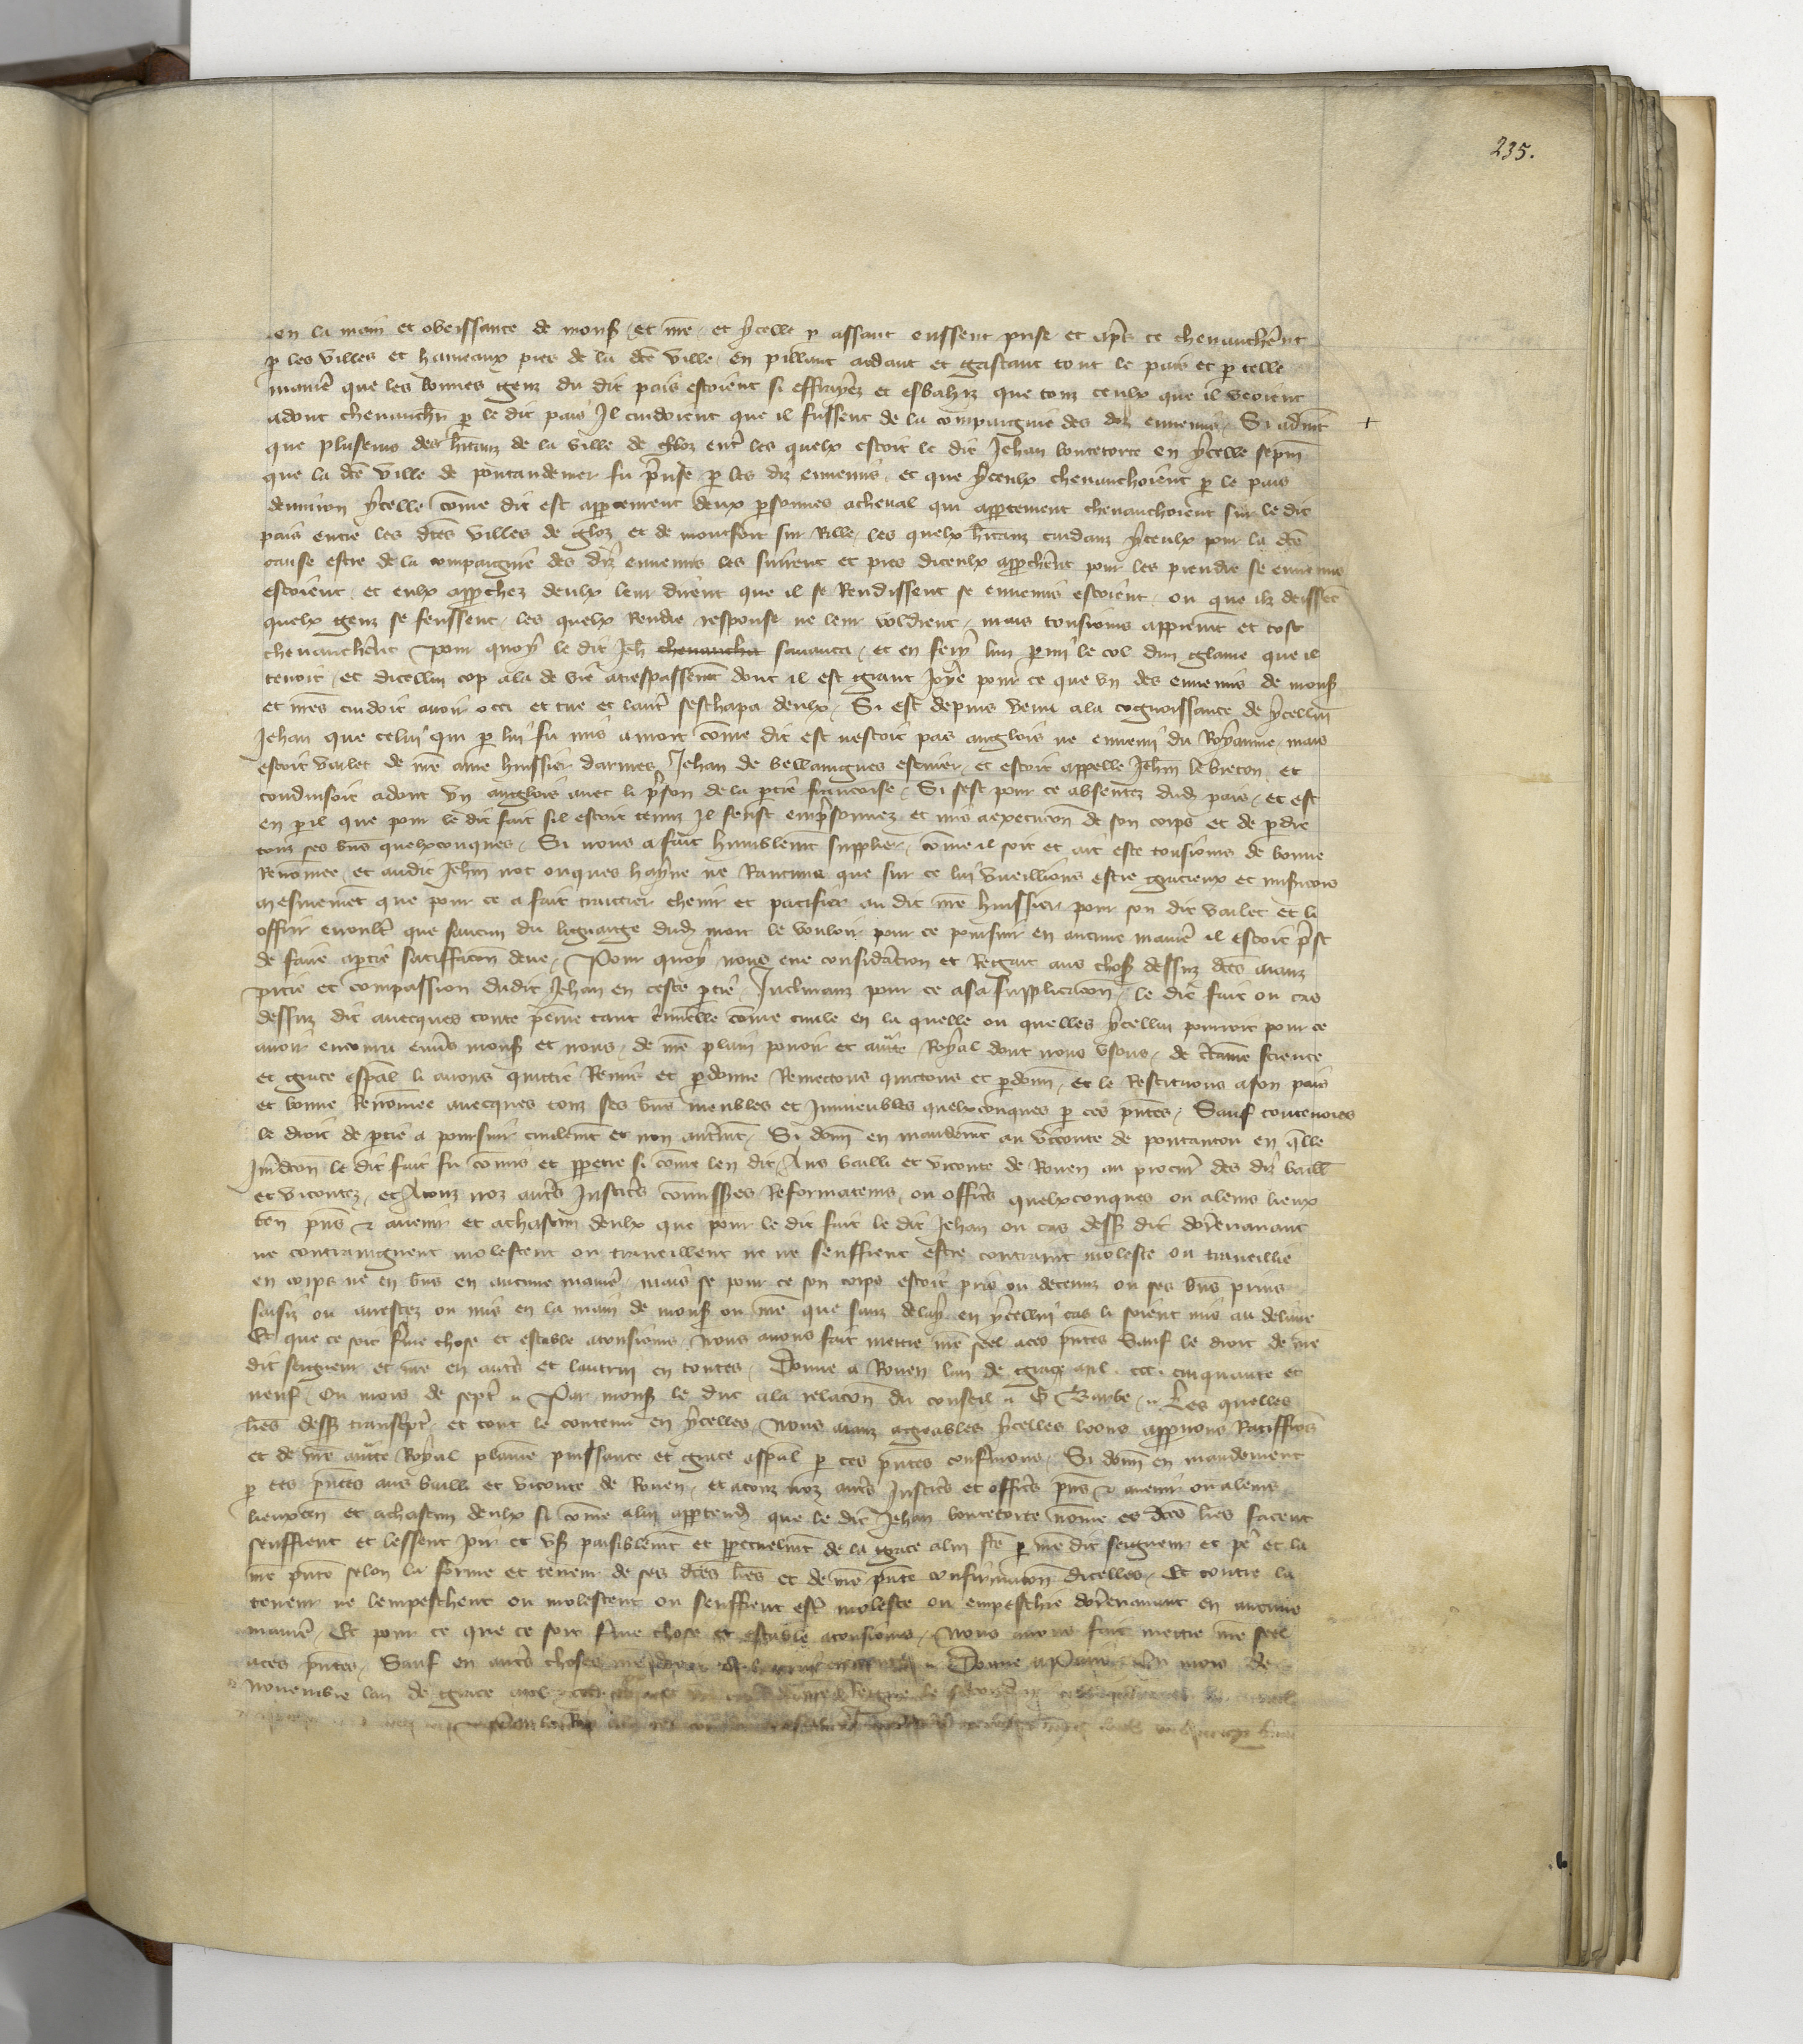 235.
en la main et obeissance de mons. et nre et ycelle p assaut eussent prise et apres ce chevaucherent
p les villes et hameaux pres de la dce ville en pillant ardant et gastant tout le pais et p telle
maniere que les bonnes genz du dit pais estoient si effraiez et esbahiz que touz ceulx que il veoient
adont chevauchier p le dit pais Il cuidoient que il fussent de la compaignie des diz ennemis. Si advint +
que pluseurs des hitanz de la ville de gloz entre les quelx estoit le dit Jehan boutetorte en ycelle sepm
que la dce ville de pontaudemer fu prinse p les diz ennemis, et que yceulx chevauchoient p le pais
denviron ycelle come dit est apperceurent deux psonnes acheval qui appertement chevauchoient sur le dit
pais entre les dces villes de gloz et de montfort sur Rille, les quelx hitanz cuidanz yceulx pour la dce
cause estre de la compaignie des diz ennemis les suirent et pres diceulx approcherent pour les prendre se ennemis
estoient, et eulx approchez deulx leur dirent que il se Rendissent se ennemis estoient, ou que ilz deissent
quelx genz se feussent, les quelx Rendre response ne leur voldrent, mais tousjours apprement et tost
chevaucherent. Pour quoy le dit Jeh chevaucha savanca, et en feri lun parmi le col dun glaive que il
tenoit, et dicellui cop ala de vie a trespassement dont il est grant joye pour ce que un des ennemis de mons
et nres cuidoit avoir occi et tue et lautre seschapa deulx. Si est depuis venu ala cognoissance de ycellui
Jehan que celui qui p lui fu mis amort come dit est nestoit pas anglois ne ennemi du Royaume, mais
estoit varlet de nre ame huissier darmes Jehan de bellangues escuier, et estoit appelle Jehan le breton et
conduisoit adont un anglois avec li prison de la partie francoise. Si sest pour ce absentez dud pais, et est
en peril que pour le dit fait sil estoit tenuz Il feust emprisonnez et mis a execucon de son corps et de pdre
touz ses biens quelxconques. Si nous a fait humblement supplier, come il soit et ait este tousjours de bonne
Renomee, et audit Jehan not onques hayne ne Rancune que sur ce lui vueillions estre gracieux et misicors
mesmement que pour ce a fait traictier chevir et pacifier au dit nre huissier pour son dit varlet et li
offrir en oultre que saucun du lignaige dud mort le vouloit pour ce poursuir en aucune maniere il estoit prest
de faire a ptie satisfacon deue. Pour quoy nous eue consideracion et Regart aus choses dessuz dces aianz
pitie et compassion dudit Jehan en ceste ptie. Inclinanz pour ce asa supplicacon, le dit fait ou cas
dessuz dit avecques toute peine tant criminelle come civile en la quelle ou quelles ycellui pourroit pour ce
avoir encouru envers mons et nous, de nre plain povoir et aucte Royal dont nous usons, de ctaine science
et grace espal li avons quittie Remis et pdonne Remectons quictons et pdonn, et le Restituons a son pais
et bonne Renomee avecques touz ses biens meubles et Immeubles quelxconques p ces pntes. Sauf toutevoies
le droit de ptie a poursuir civilement et non autrement. Si donn en mandement au viconte de pontautou en qlle
Juridcon le dit fait fu comis et ppetre si come len dit, Aus bailli et viconte de Rouen au procur des diz baill
et vicontez, et Atouz noz autres Justiciers comisses Reformateurs, ou officiers quelxconques ou aleurs lieux
ten pns et avenir et achascun deulx que pour le dit fait le dit Jehan ou cas dess dit dorenavant
ne contraignent molestent ou traveillent ne ne seuffrent estre contraint moleste ou traveillie
en corps ne en biens en aucune maniere, mais se pour ce son corps estoit pris ou detenuz ou ses biens prins
saisiz ou arrestez ou mis en la main de mons ou nre que sanz delay en ycellui cas li soient mis au delivre
Et que ce soit ferme chose et estable atousjours. Nous avons fait mettre nre seel aces pntes Sauf le droit de nre
dit seigneur et nre en autres et lautrui en toutes. Donne a Rouen lan de grace mil. ccc. cinquante et
neuf, Ou mois de septe. Par mons le duc ala relacon du conseil. G Barbe. Les quelles
lres dess transcriptes et tout le contenu en ycelles, Nous aianz agreables ycelles loons approuvons Ratiffions
et de nre aucte Royal plaine puissance et grace espal p ces pntes confirmons. Si donn en mandement
p ces pntes aus bailli et viconte de Rouen, et atouz noz autres Justiciers et officiers pns et avenir ou aleurs
lieuxten et achascun deulx si come alui appartendra que le dit Jehan boutetorte nomme es dces lres facent
seuffrent et lessent joir et user paisiblement et ppetuelment de la grace alui fce p nre dit seigneur et pere et la
nre pnte selon la forme et teneur de ses dces lres et de nre pnte confirmacon dicelles. Et contre la
teneur ne lempeschent ou molestent ou seuffrent estre moleste ou empeschie dorenavant en aucune
maniere. Et pour ce que ce soit ferme chose et estable atousjours. Nous avons fait mettre nre seel
aces pntes. Sauf en autres choses nre droit et lautrui en toutes. Donne aParis Ou mois de
Novembre lan de grace mil
le Roy